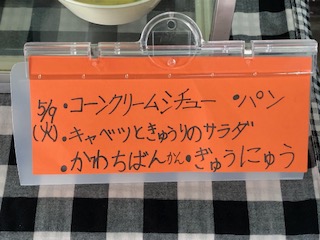 5/9 (火) ・コーンクリームシチュー ・パン
・キャベツときゅうりのサラダ
・かわちばんかん ・ぎゅうにゅう